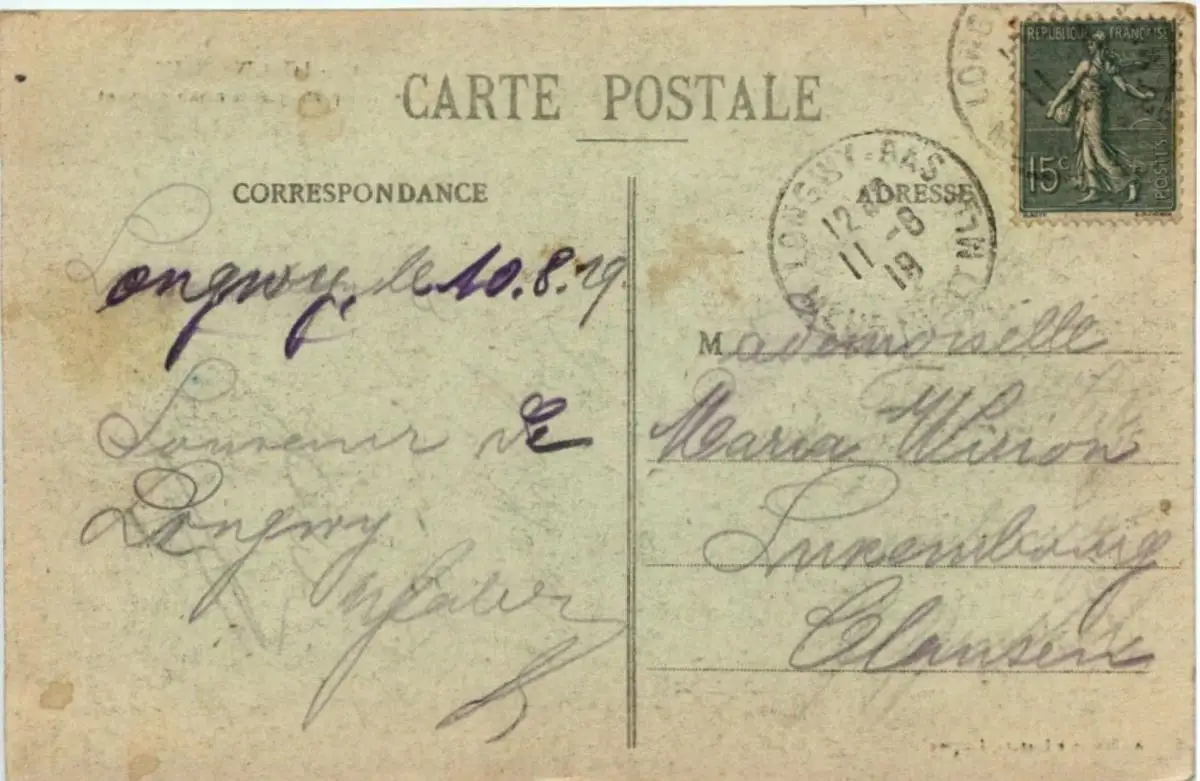 CARTE POSTALE
CORRESPONDANCE
ADRESSE
REPUBLIQUE FRANÇAISE
15c
POSTES
LONGWY-BAS
12
11 -8
19
Longwy, le 10.8.19.
Souvenir de
Longwy
Mademoiselle
Maria Winon
Luxembourg
Clausen